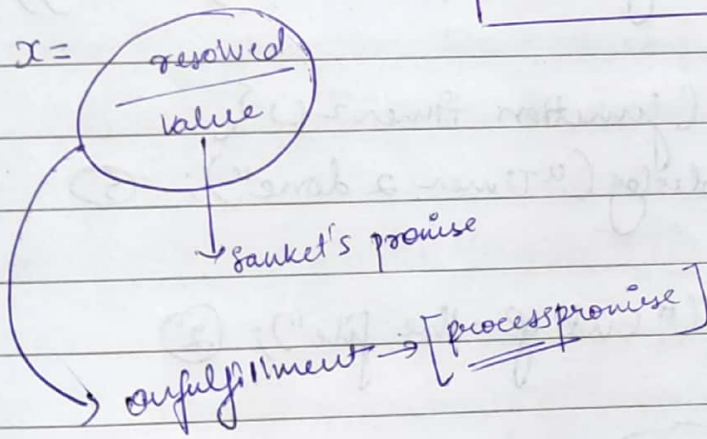 x = resolved
value
→ sanket's promise
onfulfillment → [processpromise]